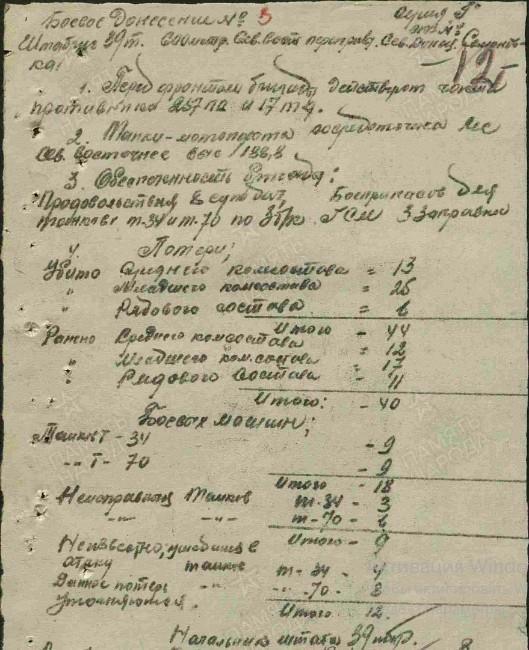 Боевое Донесение № 3
Серия Г
Штабриг 39т. Сев. Вост. переправ. Сев. Донец.
12
1. Перед фронтом бригады действуют части
противника 257 пд и 17 тд.
2. Танки - мотопехота сосредоточена лес
Сев. Восточнее выс. 188,8
3. Обеспеченность бригады:
Продовольствия 2 сутодач, Боеприпасов для
танков т-34 и т-70 по 3 б/к. ГСМ 3 заправки
4. Потери:
Убито Среднего комсостава = 13
" Младшего комсостава = 25
" Рядового состава = 6
Итого - 44
Ранено Среднего комсостава = 12
" Младшего ком.состава = 17
" Рядового состава - 11
Итого: - 40
Боевых машин:
Танков Т-34 - 9
-"- Т-70 - 9
Итого - 18
Неисправных Танков т-34 - 3
-"- -"- т-70 - 6
Итого - 9
Неизвестно, ушедших в
атаку танков т-34 - 4
Данные потерь -"- -70 - 8
уточняются.
Итого 12.
Начальник штаба 39 тбр.